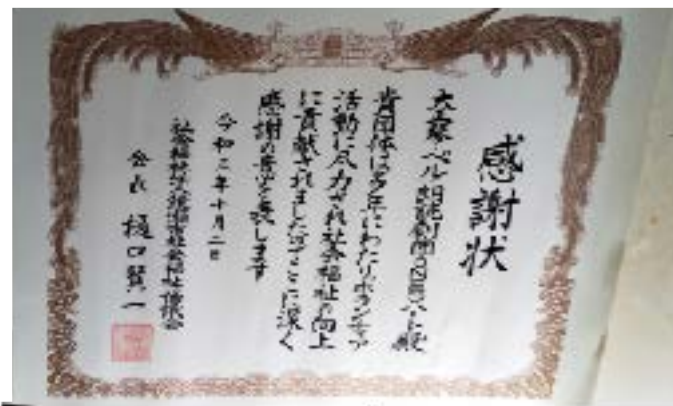 感謝状
大塚ベル
貴団体は多年にわたりボランティア
活動に尽力され社会福祉の向上
に貢献されましたのでここに深く
感謝の意を表します
令和二年十月二日
社会福祉法人 社会福祉協議会
会長 樋口賢一